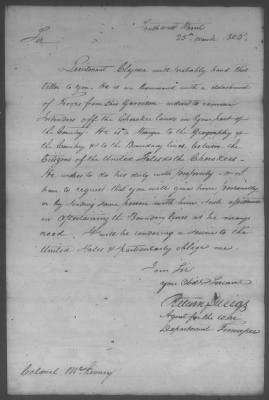 South West Point
25th March 1805
Sir
Lieutenant Clymer will probably hand this
letter to you. He is in Command with a detachment
of Troops from this Garrison ordered to remove
Intruders off the Cherokee lands in your part of
the Country. He is a Stranger to the Geography of
the Country & to the Boundary lines between the
Citizens of the United States & the Cherokees.
He wishes to do his duty with propriety & I
have to request that you will give him personally
or by sending some person with him such assistance
in ascertaining the Boundary lines as he may
need. It will be rendering a service to the
United States & particularly oblige me.
I am Sir
your Obdt Servant
Return J Meigs
Agent for the War
Department Tennessee
Colonel McKinney